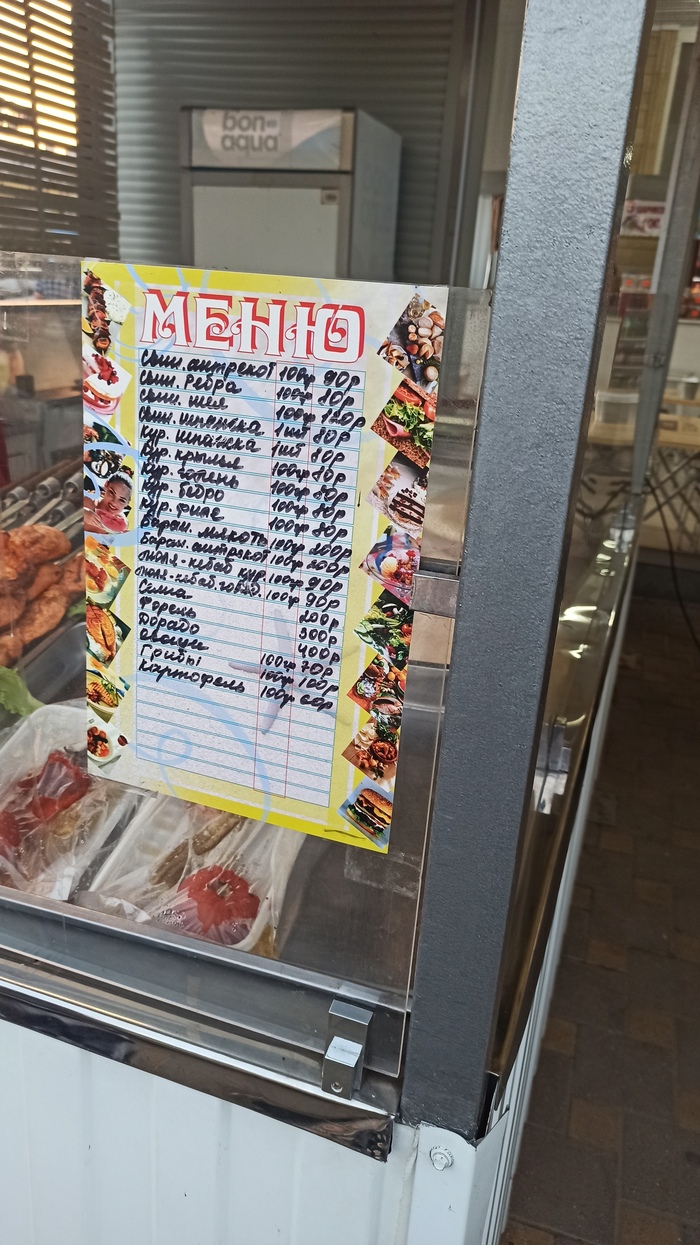 bon
aqua
МЕНЮ
Свин. антрекот 100гр 90р
Свин. ребра 100гр 80р
Свин. шея 100гр 120р
Свин. шпажка 1шт 80р
Кур. шпажка 1шт 80р
Кур. крылья 100гр 80р
Кур. голень 100гр 80р
Кур. бедро 100гр 80р
Кур. филе 100гр 80р
Баран. мякоть 100гр 200р
Баран. антрекот 100гр 200р
люля-кебаб кур 100гр 90р
люля-кебаб 100гр 90р
Семга 200р
Форель 300р
Дорадо 400р
овощи 100гр 70р
Грибы 100гр 100р
картофель 100гр 60р